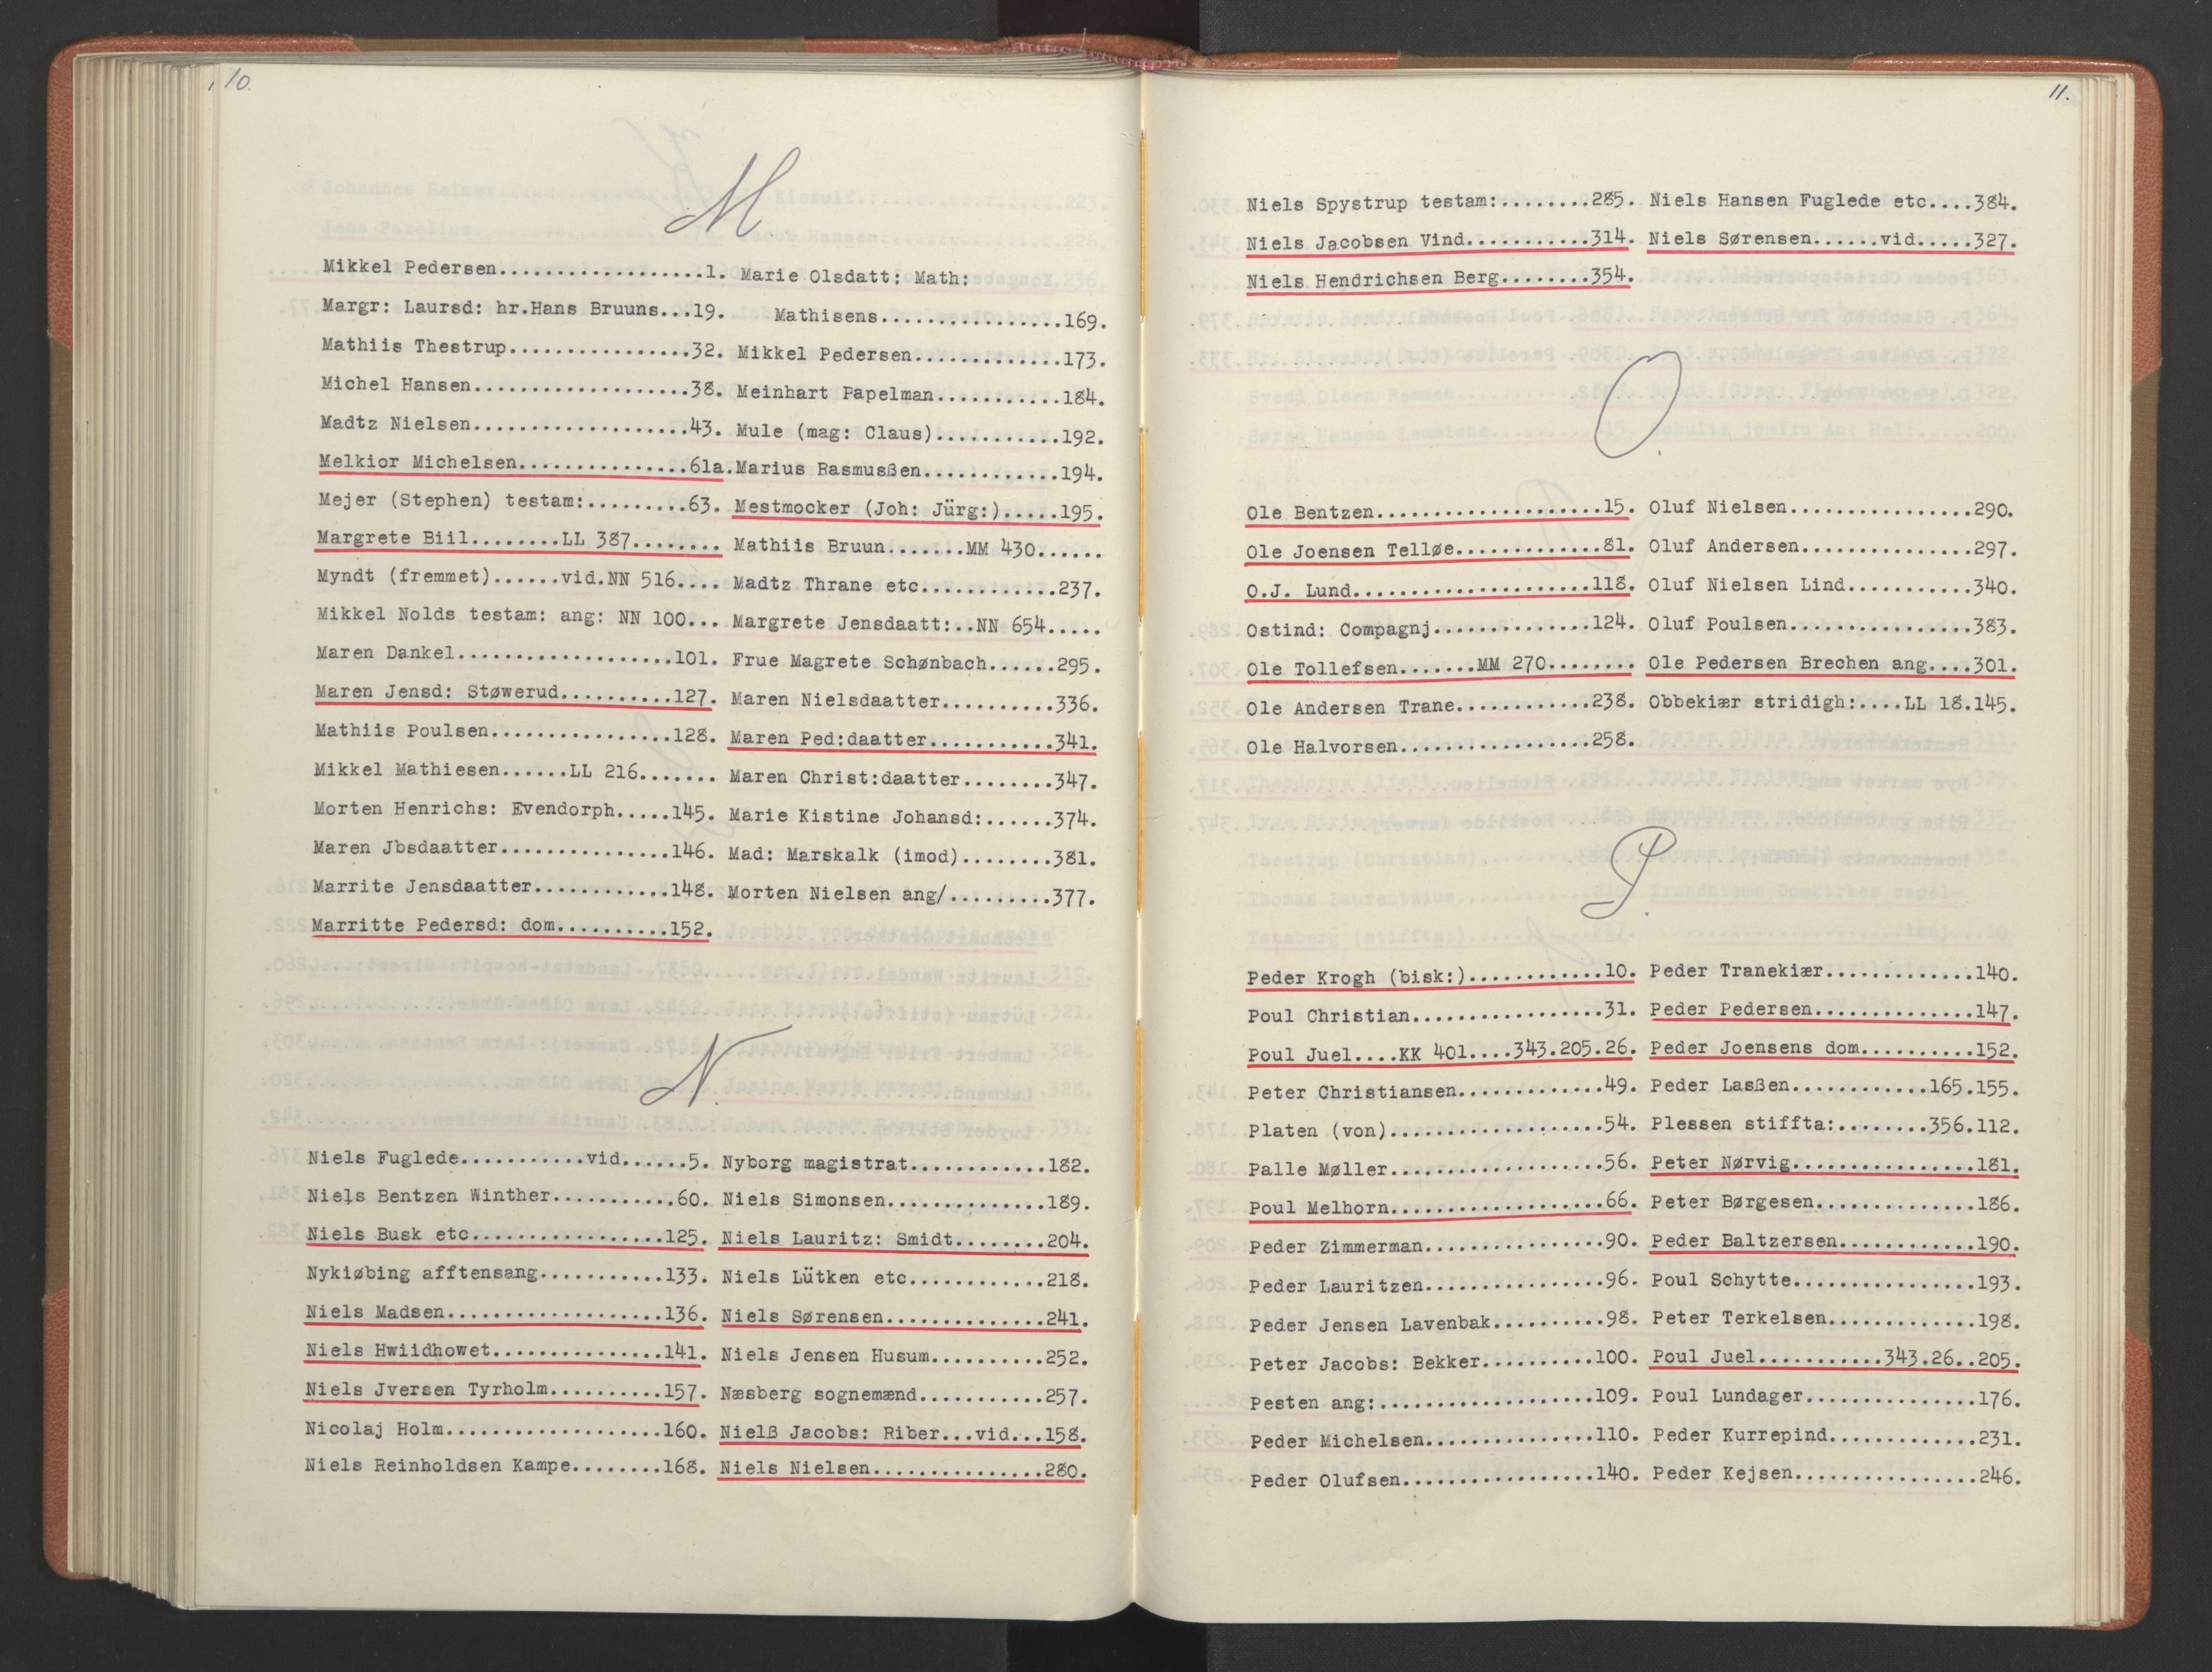 10.
M.
Mikkel Pedersen..................1.
Margr: Laursd: hr.Hans Bruuns...19.
Mathiis Thestrup................32.
Michel Hansen...................38.
Madtz Nielsen...................43.
Melkior Michelsen...............61a.
Mejer (Stephen) testam:.........63.
Margrete Biil........LL 387........
Myndt (fremmet)......vid.NN 516....
Mikkel Nolds testam: ang: NN 100...
Maren Dankel...................101.
Maren Jensd: Støwerud..........127.
Mathiis Poulsen................128.
Mikkel Mathiesen......LL 216.......
Morten Henrichs: Evendorph.....145.
Maren Jbsdaatter...............146.
Marrite Jensdaatter............148.
Marritte Pedersd: dom..........152.
Marie Olsdatt: Math:
Mathisens................169.
Mikkel Pedersen.............173.
Meinhart Papelman...........184.
Mule (mag: Claus)...........192.
Marius Rasmusßen............194.
Mestmocker (Joh: Jürg:).....195.
Mathiis Bruun.......MM 430......
Madtz Thrane etc............237.
Margrete Jensdaatt:..NN 654.....
Frue Magrete Schønbach......295.
Maren Nielsdaatter..........336.
Maren Ped:daatter...........341.
Maren Christ:daatter........347.
Marie Kistine Johansd:......374.
Mad: Marskalk (imod)........381.
Morten Nielsen ang/.........377.
N.
Niels Fuglede...........vid......5.
Niels Bentzen Winther...........60.
Niels Busk etc.................125.
Nykiøbing afftensang...........133.
Niels Madsen...................136.
Niels Hwiidhowet...............141.
Niels Jversen Tyrholm..........157.
Nicolaj Holm...................160.
Niels Reinholdsen Kampe........168.
Nyborg magistrat............182.
Niels Simonsen..............189.
Niels Lauritz: Smidt........204.
Niels Lütken etc............218.
Niels Sørensen..............241.
Niels Jensen Husum..........252.
Næsberg sognemænd...........257.
Nielß Jacobs: Riber...vid...158.
Niels Nielsen...............280.
11.
Niels Spystrup testam:........285.
Niels Jacobsen Vind...........314.
Niels Hendrichsen Berg........354.
Niels Hansen Fuglede etc....384.
Niels Sørensen......vid.....327.
O.
Ole Bentzen....................15.
Ole Joensen Telløe.............81.
O.J. Lund.....................118.
Ostind: Compagnj..............124.
Ole Tollefsen.......MM 270........
Ole Andersen Trane............238.
Ole Halvorsen.................258.
Oluf Nielsen................290.
Oluf Andersen...............297.
Oluf Nielsen Lind...........340.
Oluf Poulsen................383.
Ole Pedersen Brechen ang....301.
Obbekiær stridigh:....LL 18.145.
P.
Peder Krogh (bisk:)............10.
Poul Christian.................31.
Poul Juel....KK 401....343.205.26.
Peter Christiansen.............49.
Platen (von)...................54.
Palle Møller...................56.
Poul Melhorn...................66.
Peder Zimmerman................90.
Peder Lauritzen................96.
Peder Jensen Lavenbak..........98.
Peter Jacobs: Bekker..........100.
Pesten ang:...................109.
Peder Michelsen...............110.
Peder Olufsen.................140.
Peder Tranekiær.............140.
Peder Pedersen..............147.
Peder Joensens dom..........152.
Peder Lasßen............165.155.
Plessen stiffta:........356.112.
Peter Nørvig................181.
Peter Børgesen..............186.
Peder Baltzersen............190.
Poul Schytte................193.
Peter Terkelsen.............198.
Poul Juel...........343.26..205.
Poul Lundager...............176.
Peder Kurrepind.............231.
Peder Kejsen................246.